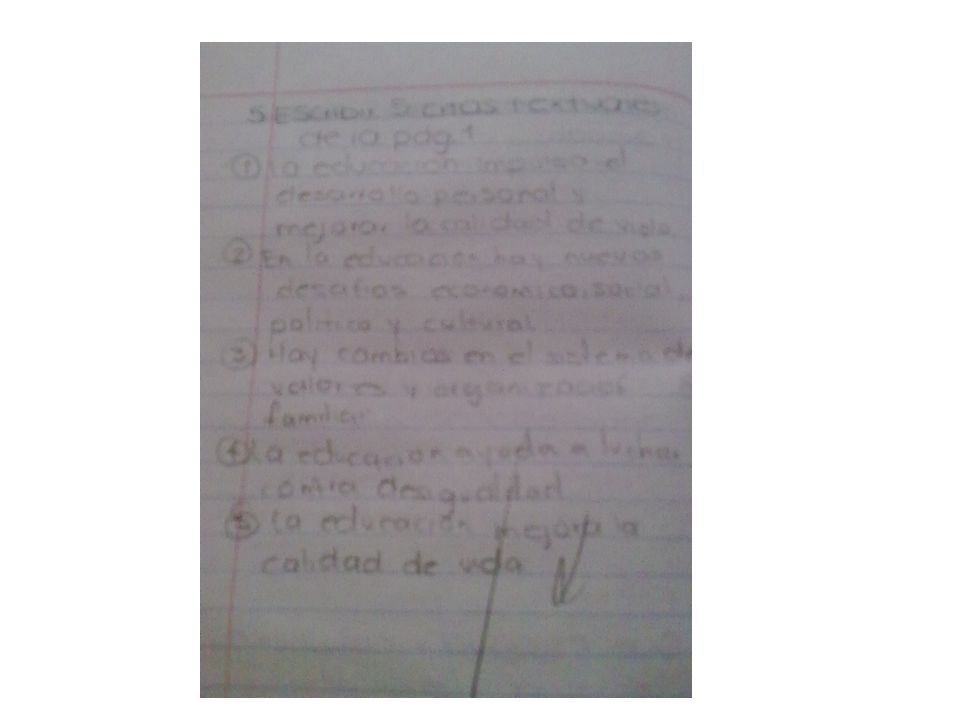 5 Escribir 5 citas textuales
de la pág. 1
① La educación impulsa el
desarrollo personal y
mejorar la calidad de vida
② En la educación hay nuevos
desafios economico, social,
politico y cultural
③ Hay cambios en el sistema de
valores y organización
familiar
④ La educación ayuda a luchar
contra desigualdad
⑤ la educación mejora la
calidad de vida